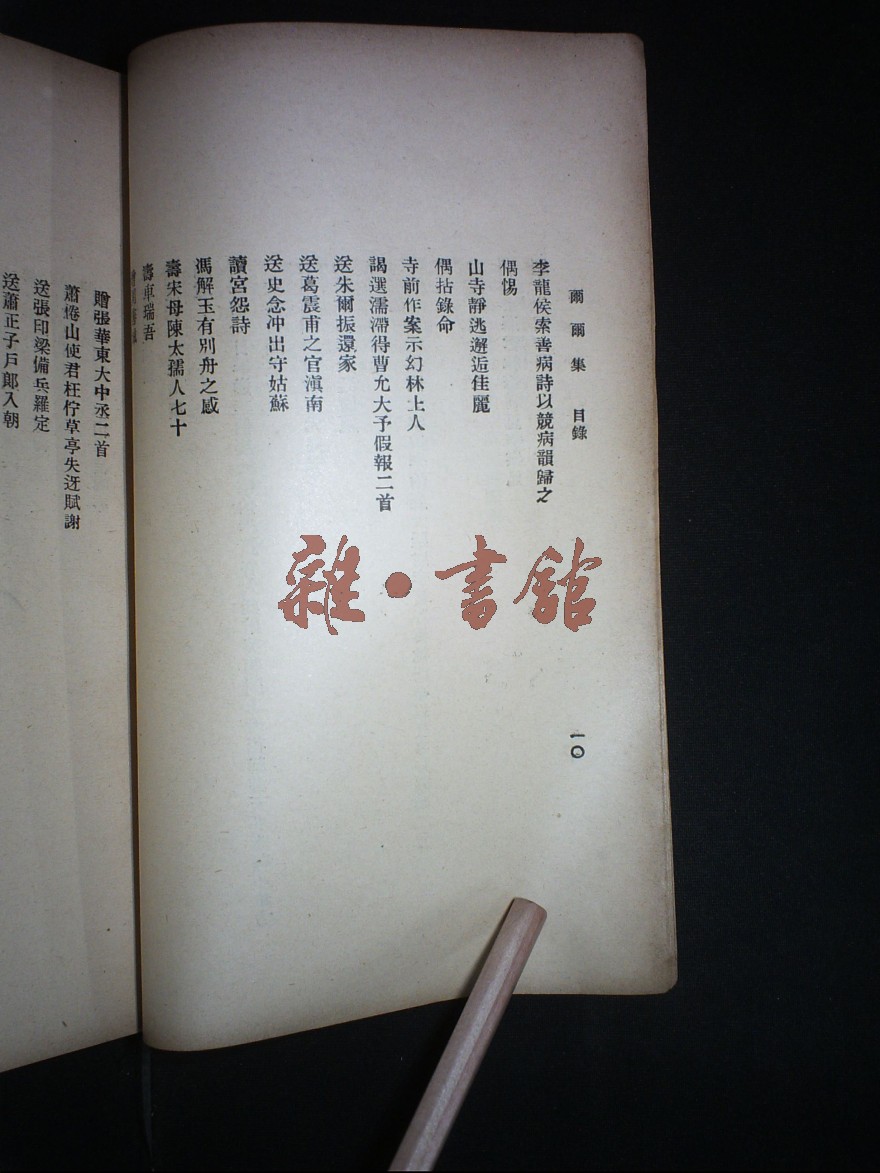 爾爾集 目錄
一〇
李龍侯索善病詩以競病韻歸之
偶惕
山寺靜逃邂逅佳麗
偶拈錄命
寺前作案示幻林上人
謁選濡滯得曹允大予假報二首
送朱爾振還家
送葛震甫之官滇南
送史念冲出守姑蘇
讀宮怨詩
馮解玉有別舟之感
壽宋母陳太孺人七十
壽車瑞吾
贈張華東大中丞二首
蕭倦山使君枉佇草亭失迓賦謝
送張印梁備兵羅定
送蕭正子戶郎入朝
雜·書館